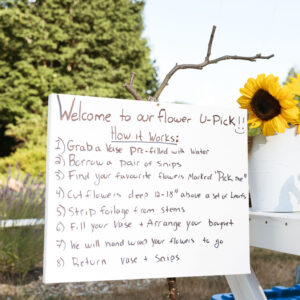 Welcome to our flower U-Pick!!
How it Works:
1) Grab a Vase pre-filled with water
2) Borrow a pair of snips
3) Find your favourite flowers Marked "Pick me"
4) Cut flowers deep 12-18" above a set of leaves
5) Strip foliage from stems
6) Fill your Vase + Arrange your bouquet
7) We will hand wrap your flowers to go
8) Return vase + snips